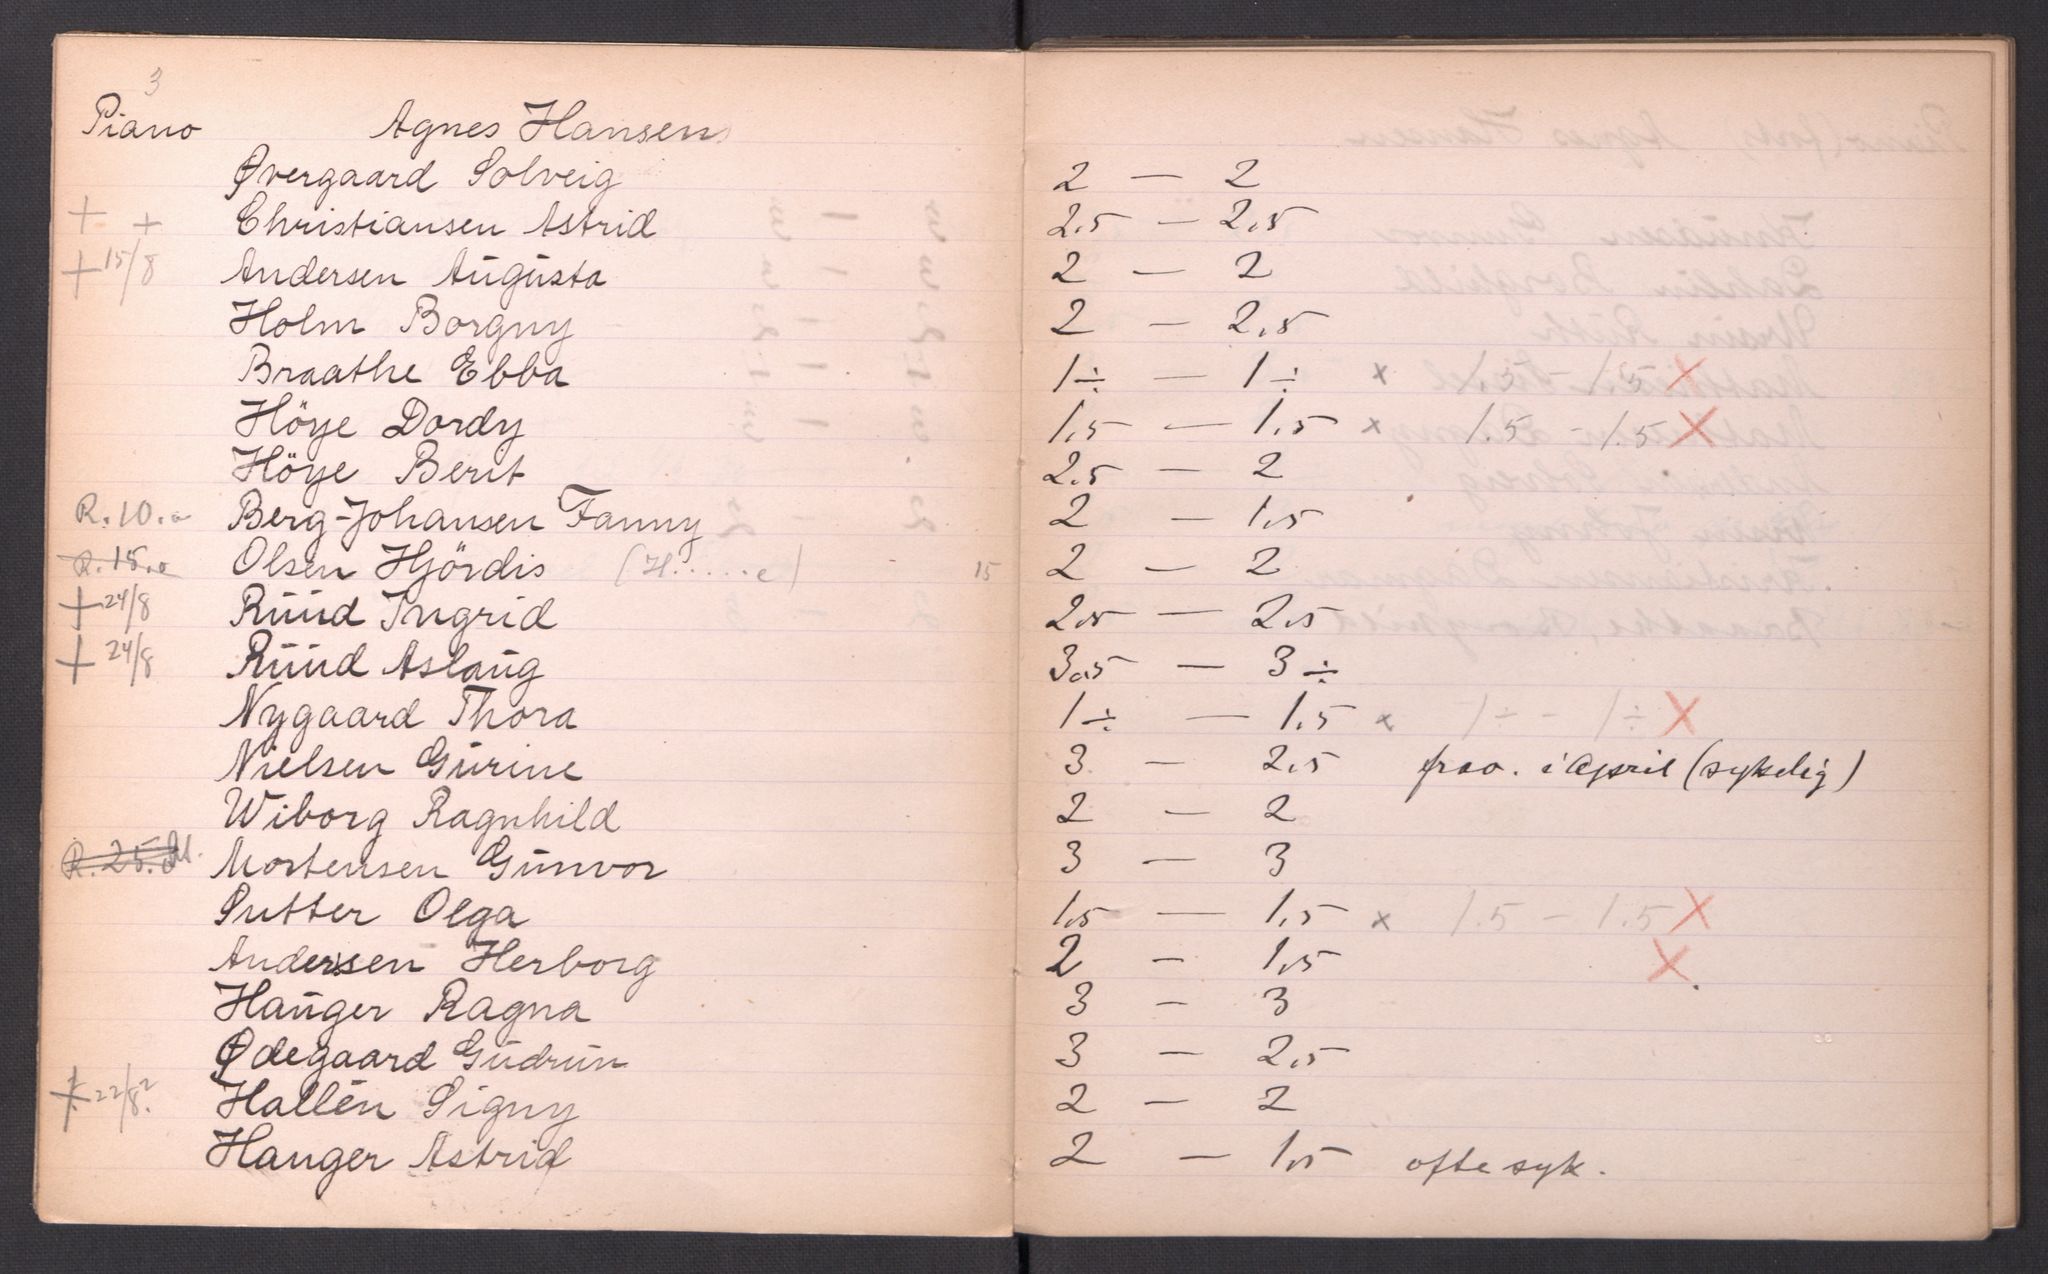 3
Piano Agnes Hansen
Øvergaard Solveig 2 — 2
+ + Christiansen Astrid 2,5 — 2,5
+ 15/8 Andersen Augusta 2 — 2
Holm Borgny 2 — 2,5
Braathe Ebba 1÷ — 1÷ × 1.5 - 1.5 X
Höye Dordy 1,5 — 1,5 × 1.5 - 1.5 X
Höye Berit 2,5 — 2
R. 10. Berg-Johansen Fanny 2 — 1,5
R. 15. Olsen Hjördis (H.....e) 15 2 — 2
+ 24/8 Ruud Ingrid 2,5 — 2,5
+ 24/8 Ruud Aslaug 3,5 — 3÷
Nygaard Thora 1÷ — 1,5 × 1÷ - 1÷ X
Nielsen Gurine 3 — 2,5 frav. i April (sykelig)
Wiborg Ragnhild 2 — 2
R. 25. M. Mortensen Gunvor 3 — 3
Sutter Olga 1,5 — 1,5 × 1.5 - 1.5 X
Anderssen Herborg 2 - 1,5 X
Hauger Ragna 3 - 3
Ødegaard Gudrun 3 - 2,5
+ 22/8? Hallén Signy 2 - 2
Hauger Astrid 2 — 1,5 ofte syk.